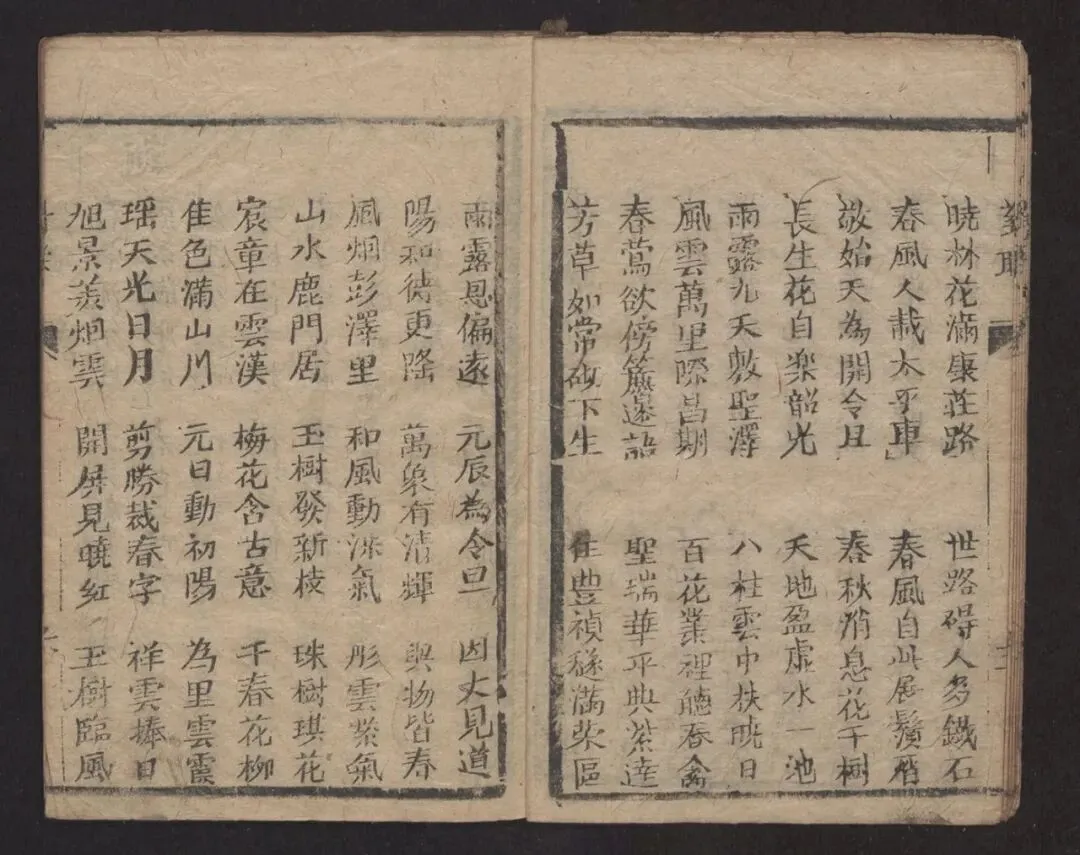 對聯
曉林花滿康莊路 世路碍人多鐵石
春風人載太平車 春風自此展鬚眉
敬始天為開令旦 春秋消息花千樹
長生花自樂韶光 天地盈虛水一池
雨露九天敷聖澤 八柱雲中扶暁日
風雲萬里際昌期 百花業裡聽春禽
春鶯欲傍簾邊語 聖瑞華平典紫達
芳草如常砌下生 佳豊禎穟滿荣區
雨露恩偏遠 元辰為令旦 因大見道
陽和待更隆 萬象有清輝 與物皆春
風烟彭澤里 和風動淑氣 彤雲紫氣
山水鹿門居 玉樹發新枝 珠樹琪花
宸章在雲漢 梅花含古意 千春花柳
隹色滿山川 元日動初陽 為里雲霞
瑶天光日月 剪勝裁春字 祥雲捧日
旭景美烟雲 開屏見曉红 玉樹臨風